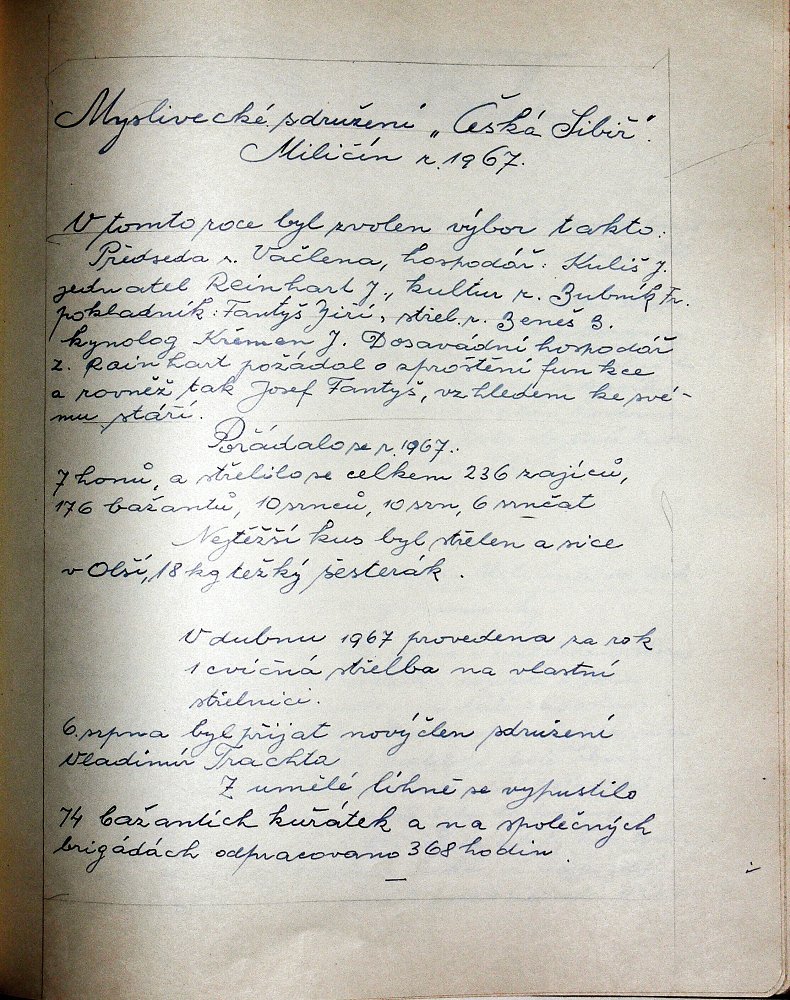 Myslivecké sdružení „Česká Sibiř".
Miličín r. 1967.
V tomto roce byl zvolen výbor takto:
Předseda s. Vačlena, hospodář: Kuliš J.
jednatel Reinhart J., kultur r. Zubník Fr.
pokladník: Fantyš Jiří, střel. r. Beneš B.
kynolog Křemen J. Dosavádní hospodář
z. Rainhart požádal o zproštění funkce
a rovněž tak Josef Fantyš, vzhledem ke své-
mu stáří.
Pořádalo se r. 1967.
7 honů, a střelilo se celkem 236 zajíců,
176 bažantů, 10 srnců, 10 srn, 6 srnčat
Nejtěžší kus byl střelen a sice
v Olší, 18 kg težký šesterák.
V dubnu 1967 provedena za rok
1 cvičná střelba na vlastní
střelnici.
6. srpna byl přijat nový člen sdružení
Vladimír Trachta
Z umělé líhně se vypustilo
74 bažantích kuřátek a na společných
brigádách odpracovano 368 hodin.